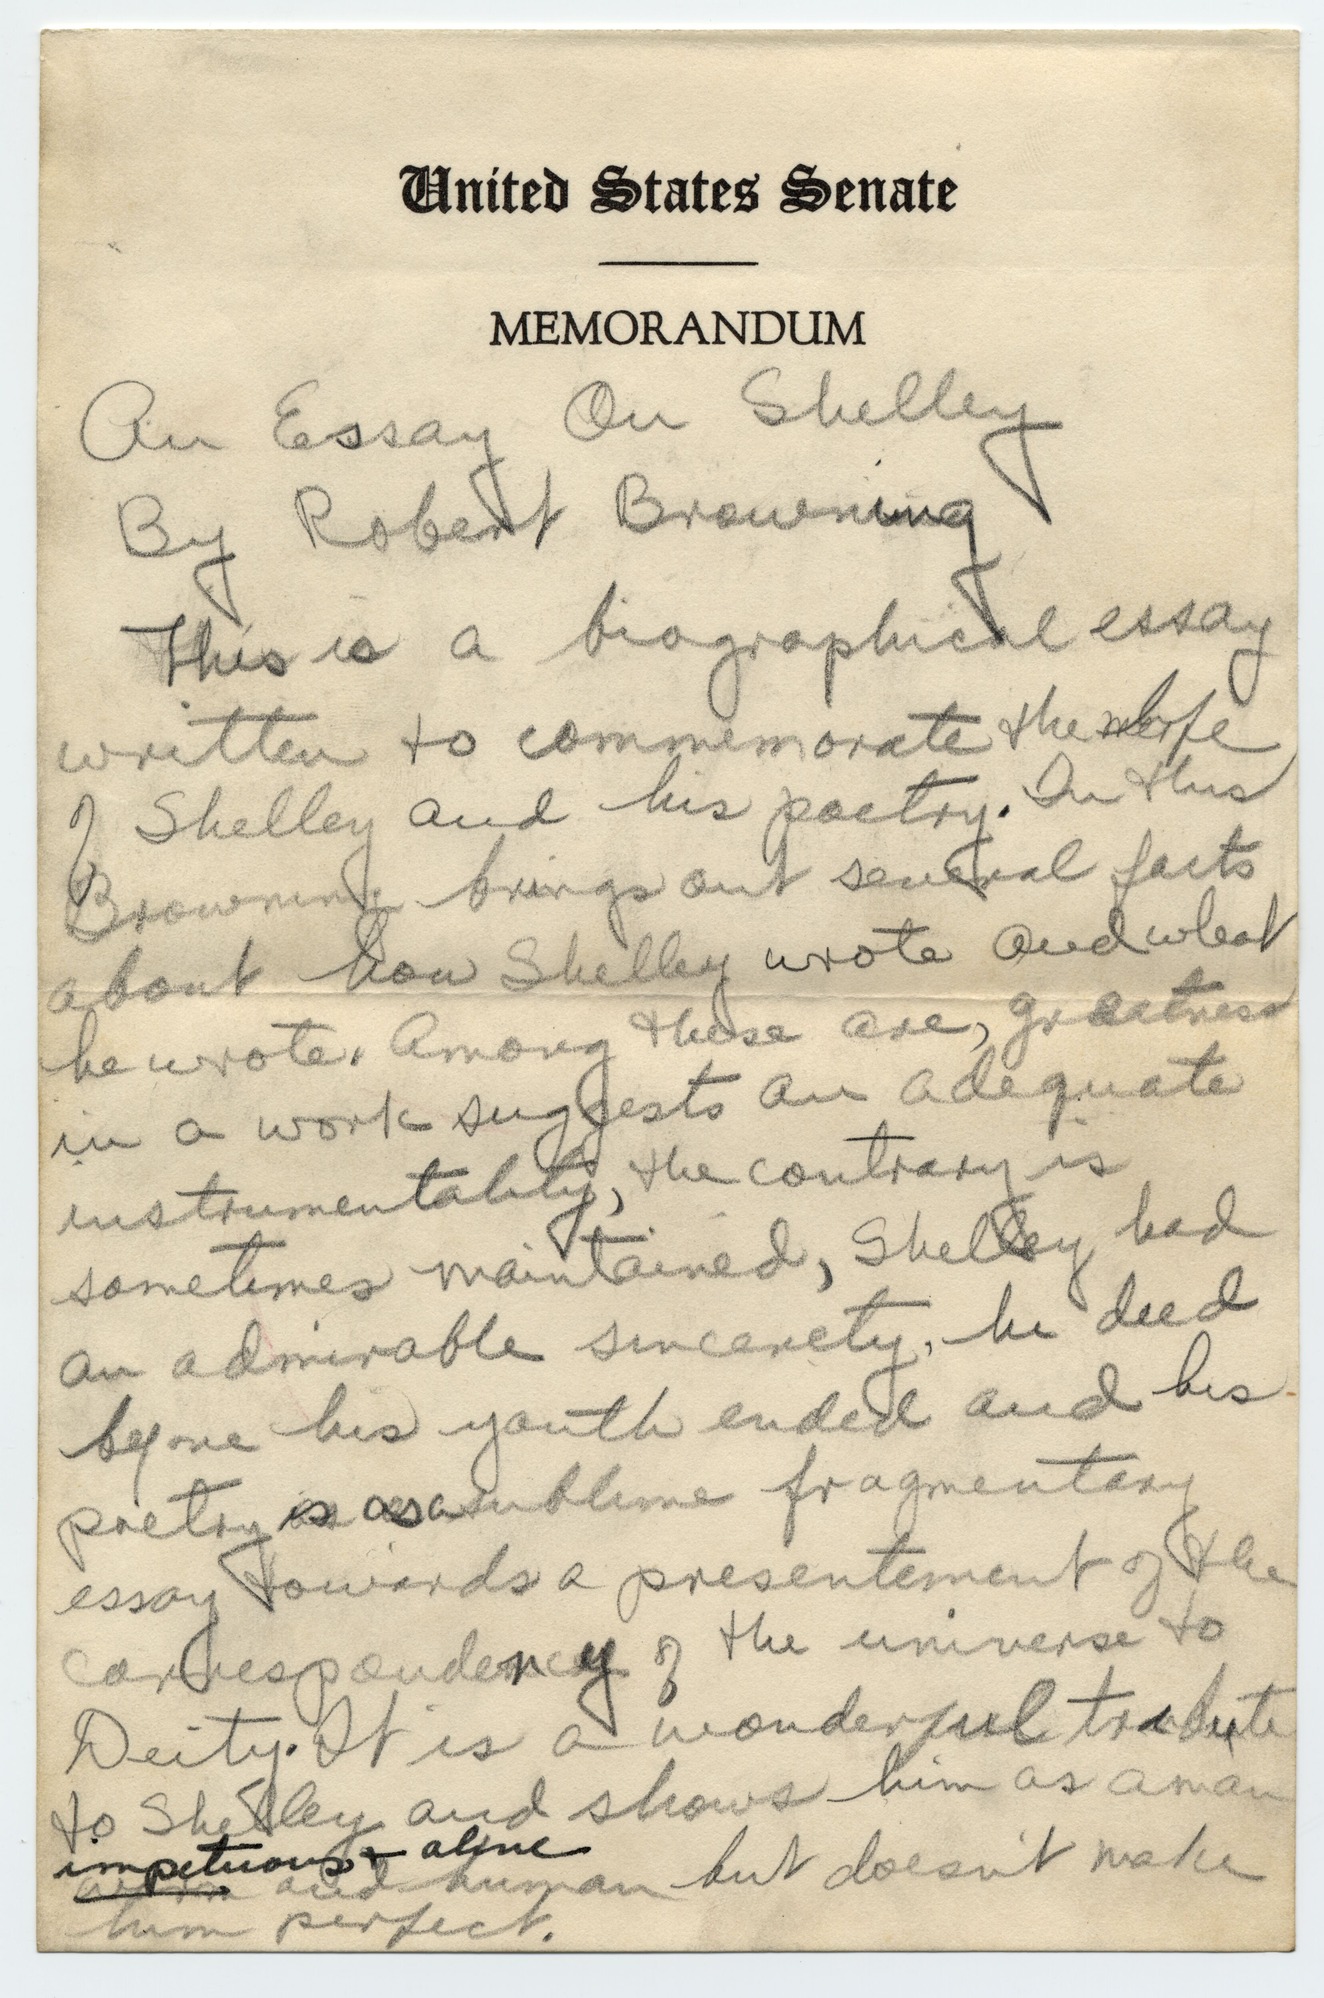 United States Senate
MEMORANDUM
An Essay On Shelley
By Robert Browning
This is a biographical essay
written to commemorate the life
of Shelley and his poetry. In this
Browning brings out several facts
about how Shelley wrote and what
he wrote. Among these are, greatness
in a work suggests an adequate
instrumentality, the contrary is
sometimes maintained, Shelley had
an admirable sincerety, he died
before his youth ended and his
poetry is as a sublime fragmentary
essay towards a presentement of the
correspondency of the universe to
Deity. It is a wonderful tribute
to Shelley and shows him as a man
impetuous + alive
and human but doesn't make
him perfect.